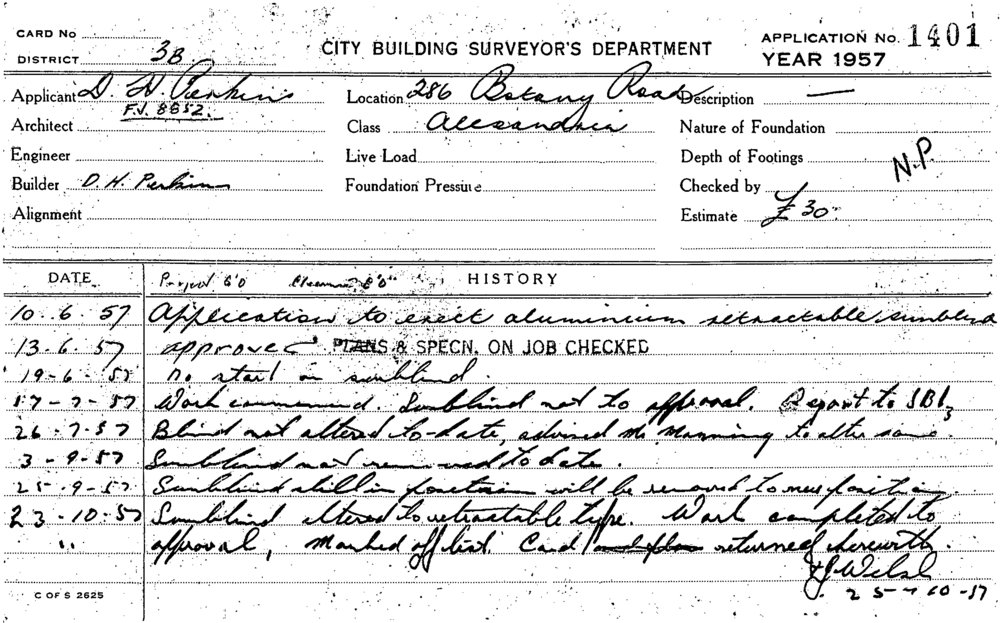 CARD No
DISTRICT 3B
CITY BUILDING SURVEYOR'S DEPARTMENT
APPLICATION No. 1401
YEAR 1957
Applicant D. H. Perkins
F.J. 8852.
Architect
Engineer
Builder D. H. Perkins
Alignment
Location 286 Botany Road
Class Alexandria
Live Load
Foundation Pressure
Description —
Nature of Foundation
Depth of Footings
N.P.
Checked by
Estimate £ 30
DATE Project 6'0 8'0" HISTORY
10.6.57 Application to erect aluminium retractable sunblind
13-6.57 approved PLANS & SPECN. ON JOB CHECKED
19-6-57 No start on sunblind.
17-7-57 Work commenced. Sunblind not to approval. Report to SBI3
26-7-57 Blind not altered to-date, advised Mr Manning to alter same.
3-9-57 Sunblind not removed to date.
25-9-57 Sunblind still in position will be removed to new position.
23-10-57 Sunblind altered to retractable type. Work completed to
" approval, Marked off list. Card and plan returned herewith.
25-10-57
C OF S 2625